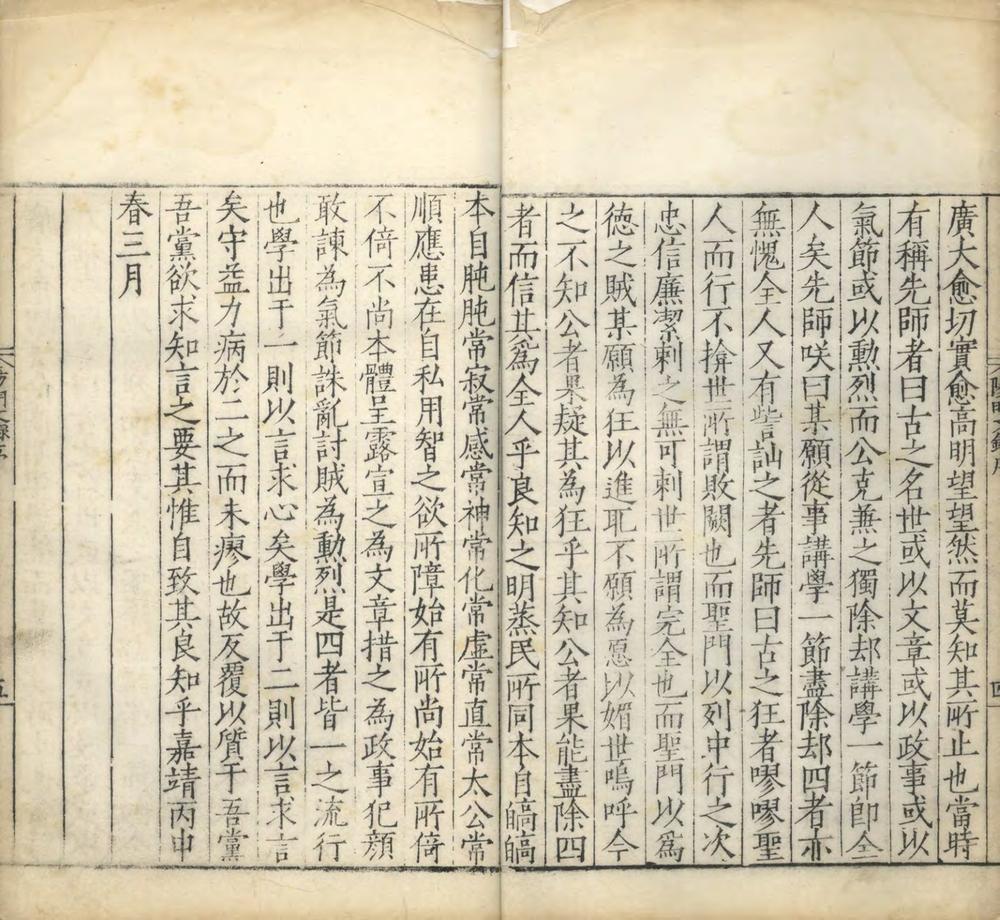 廣大愈切實愈高明望望然而莫知其所止也當時
有稱先師者曰古之名世或以文章或以政事或以
氣節或以勳烈而公克兼之獨除却講學一節卽全
人矣先師咲曰某願從事講學一節盡除却四者亦
無愧全人又有訾訕之者先師曰古之狂者嘐嘐聖
人而行不揜世所謂敗闕也而聖門以列中行之次
忠信廉潔刺之無可刺世所謂完全也而聖門以爲
徳之賊某願為狂以進取不願為愿以媚世嗚呼今
之不知公者果疑其為狂乎其知公者果能盡除四
者而信其爲全人乎良知之明蒸民所同本自皜皜
本自肫肫常寂常感常神常化常虛常直常太公常
順應患在自私用智之欲所障始有所尚始有所倚
不倚不尚本體呈露宣之為文章措之為政事犯顏
敢諫為氣節誅亂討賊為勳烈是四者皆一之流行
也學出于一則以言求心矣學出于二則以言求言
矣守益力病於二之而未瘳也故反覆以質于吾黨
吾黨欲求知言之要其惟自致其良知乎嘉靖丙申
春三月
四
五